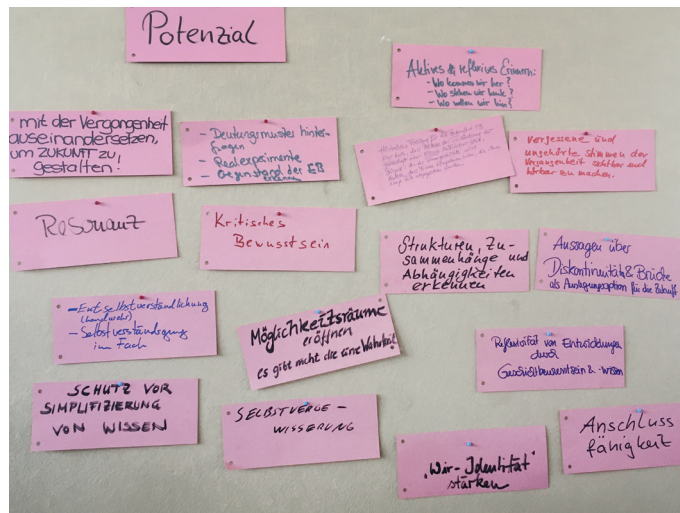 Potenzial
Aktives & reflexives Erinnern:
- Wo kommen wir her?
- Wo stehen wir heute?
- Wo wollen wir hin?
mit der Vergangenheit
auseinandersetzen,
um ZUKUNFT zu
gestalten!
- Deutungsmuster hinter-
fragen
- Realexperimente
- Gegenstand der EB
Vergessene und
ungehörte Stimmen der
Vergangenheit sichtbar und
hörbar zu machen.
Resonanz
Kritisches
Bewusstsein
Strukturen, Zu-
sammenhänge und
Abhängigkeiten
erkennen
Aussagen über
Diskontinuität & Brüche
als Auslegungsoption für die Zukunft
- Entselbstverständlichung
(Landwehr)
- Selbstverständigung
im Fach
Möglichkeitsräume
eröffnen
es gibt nicht die eine Wahrheit
Reflexivität von Entwicklungen
durch
Geschichtbewusstsein & -wissen
SCHUTZ VOR
SIMPLIFIZIERUNG
VON WISSEN
SELBSTVERGE-
WISSERUNG
"Wir-Identität"
stärken
Anschluss
fähigkeit